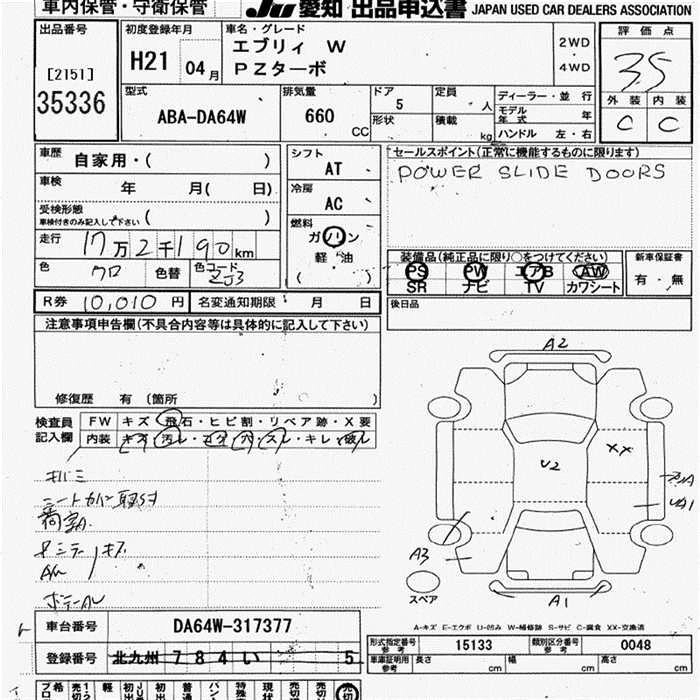 車内保管・守衛保管
JU 愛知 出品申込書 JAPAN USED CAR DEALERS ASSOCIATION
出品番号
[2151]
35336
初度登録年月
H21 04 月
車名・グレード
エブリィ W
PZターボ
2WD
4WD
評価点
35
外装 内装
C C
型式
ABA-DA64W
排気量
660
CC
ドア
5
形状
定員
人
積載
kg
ディーラー・並行
モデル年式 年
ハンドル 左・右
車歴 自家用・( )
車検 年 月( 日)
受検形態
車検付きのみ記入して下さい ( )
走行 17万2千190km
色 クロ 色替 色コード ZJ3
シフト
AT
冷房
AC
燃料
ガソリン
軽油
( )
セールスポイント(正常に機能するものに限ります)
POWER SLIDE DOORS
装備品(純正品に限り○をつけてください)
PS PW エアB AW
SR ナビ TV カワシート
新車保証書
有・無
後日品
R券 10,010 円 名変通知期限 月 日
注意事項申告欄(不具合内容等は具体的に記入して下さい)
修復歴 有 (箇所 )
検査員記入欄
FW キズ・飛石・ヒビ割・リペア跡・X要
内装 キズ・汚レ・コゲ・穴・スレ・キレ・破レ
キバミ
シートカバー取付
AW
A2
U2
XX
UA1
A3
A1
スペア
A-キズ E-エクボ U-凹み W-補修跡 S-サビ C-腐食 XX-交換済
車台番号 DA64W-317377
登録番号 北九州 784 い 5
形式指定番号 参考 15133 類別区分番号 参考 0048
車庫証明用 参考 長さ cm 幅 cm 高さ cm